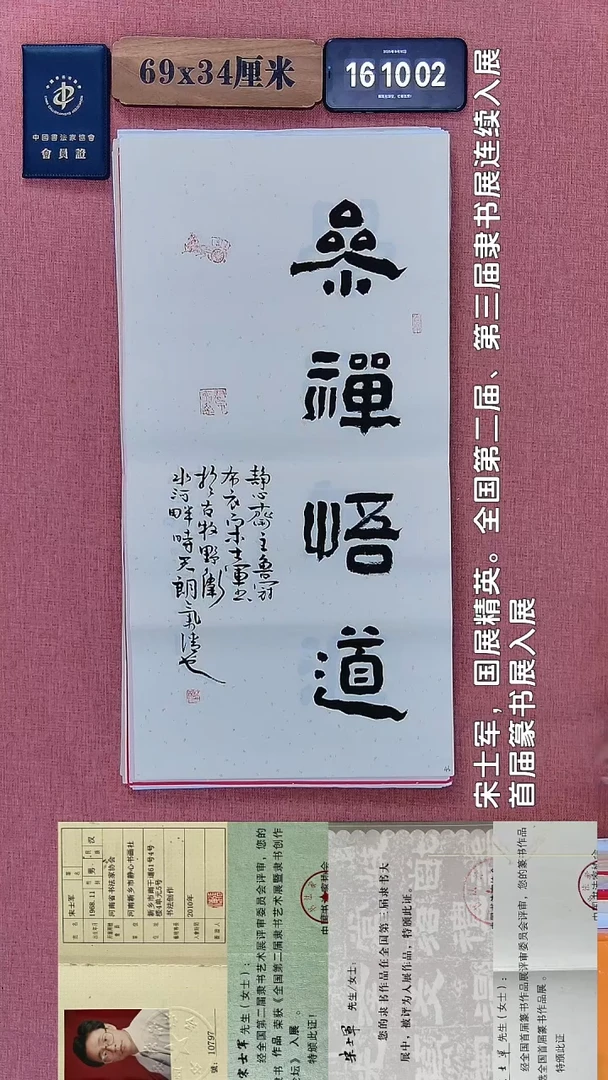 中国书法家協會
會員證
69x34厘米
16 10 02
參
禪
悟
道
静心齋主魯冠
布衣宋士軍書
於古牧野衛
水河畔時天朗氣清也
宋士军，国展精英。全国第二届、第三届隶书展连续入展
首届篆书展入展
宋士军
1968.11
男
汉
河南省书法家协会
河南新乡市静心书画社
新乡市南干道61号4号
楼4单元5号
书法创作
2010年
號：10797
宋士军 先生(女士)：
经全国第二届隶书艺术展评审委员会评审，您的
隶书 作品 荣获《全国第二届隶书艺术展暨隶书创作
论坛》 入展 。
特颁此证！
宋士军 先生/女士：
您的隶书作品在全国第三届隶书大
展中，被评为入展作品，特颁此证。
士军 先生(女士)：
经全国首届篆书作品展评审委员会评审，您的篆书作品
全国首届篆书作品展。
特颁此证